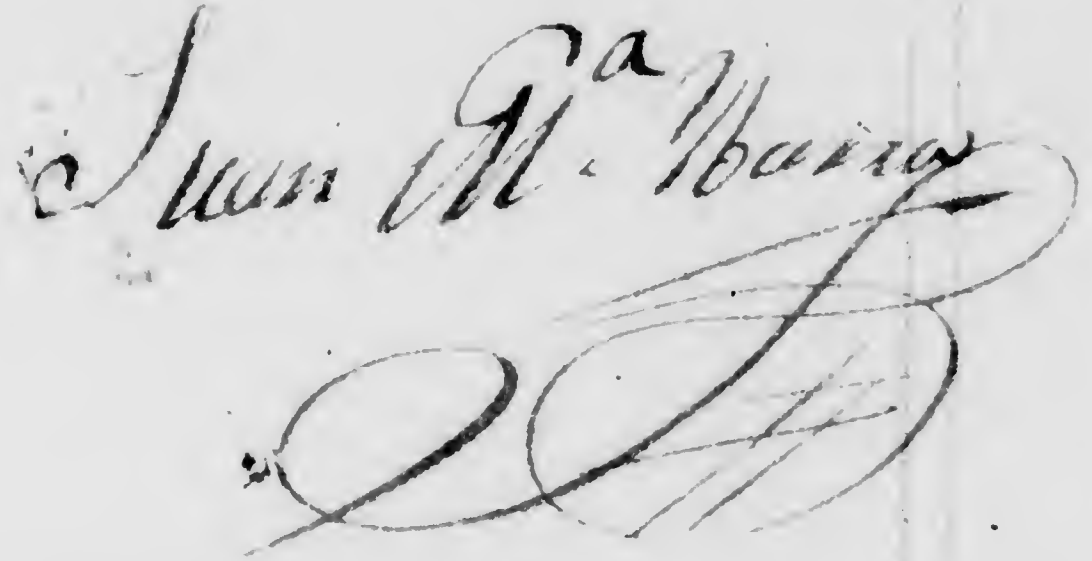 Juan Mª. Ibarra